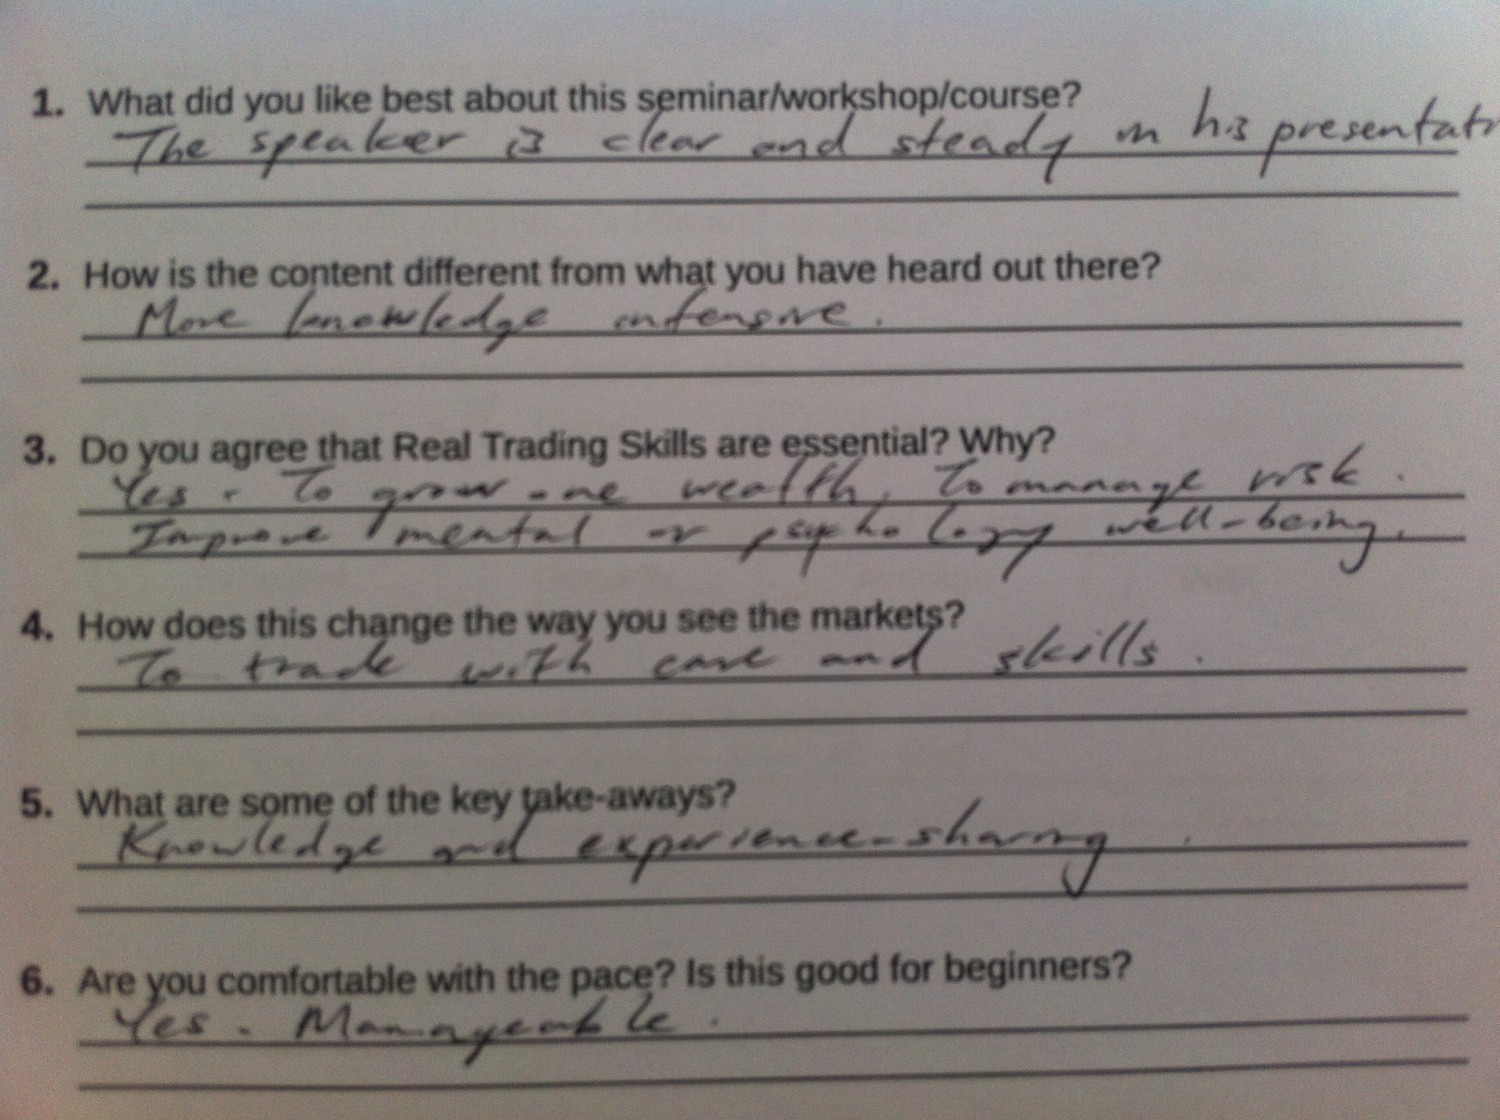 1. What did you like best about this seminar/workshop/course?
The speaker is clear and steady in his presentatn
2. How is the content different from what you have heard out there?
More knowledge intensive.
3. Do you agree that Real Trading Skills are essential? Why?
Yes. To grow one wealth, To manage risk.
Improve mental or psychology well-being.
4. How does this change the way you see the markets?
To trade with care and skills.
5. What are some of the key take-aways?
Knowledge and experience-sharing.
6. Are you comfortable with the pace? Is this good for beginners?
Yes. Manageable.